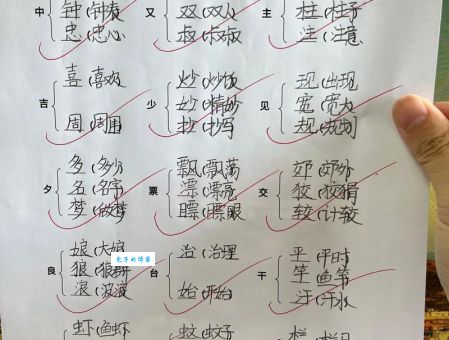 中 钟(钟表 又 双(双人 主 柱(柱子
忠(忠心 叔(叔叔 注(注意
吉 喜(喜欢 少 炒(炒饭 见 现(出现
妙(精妙 宽(宽大
周(周围 抄(抄写 规(规划
夕 多(多少 票 飘(飘荡 交 郊(郊外
名(名字 漂(漂亮 狡(狡猾
梦(做梦 瞟(瞟眼 较(计较
良 娘(大娘 台 治(治理 干 平(平时
狼(狼群 竿(鱼竿
浪(波浪 始(开始 汗(汗水
包子的博客
虾(鱼虾 蚊(蚊子 栏(栏